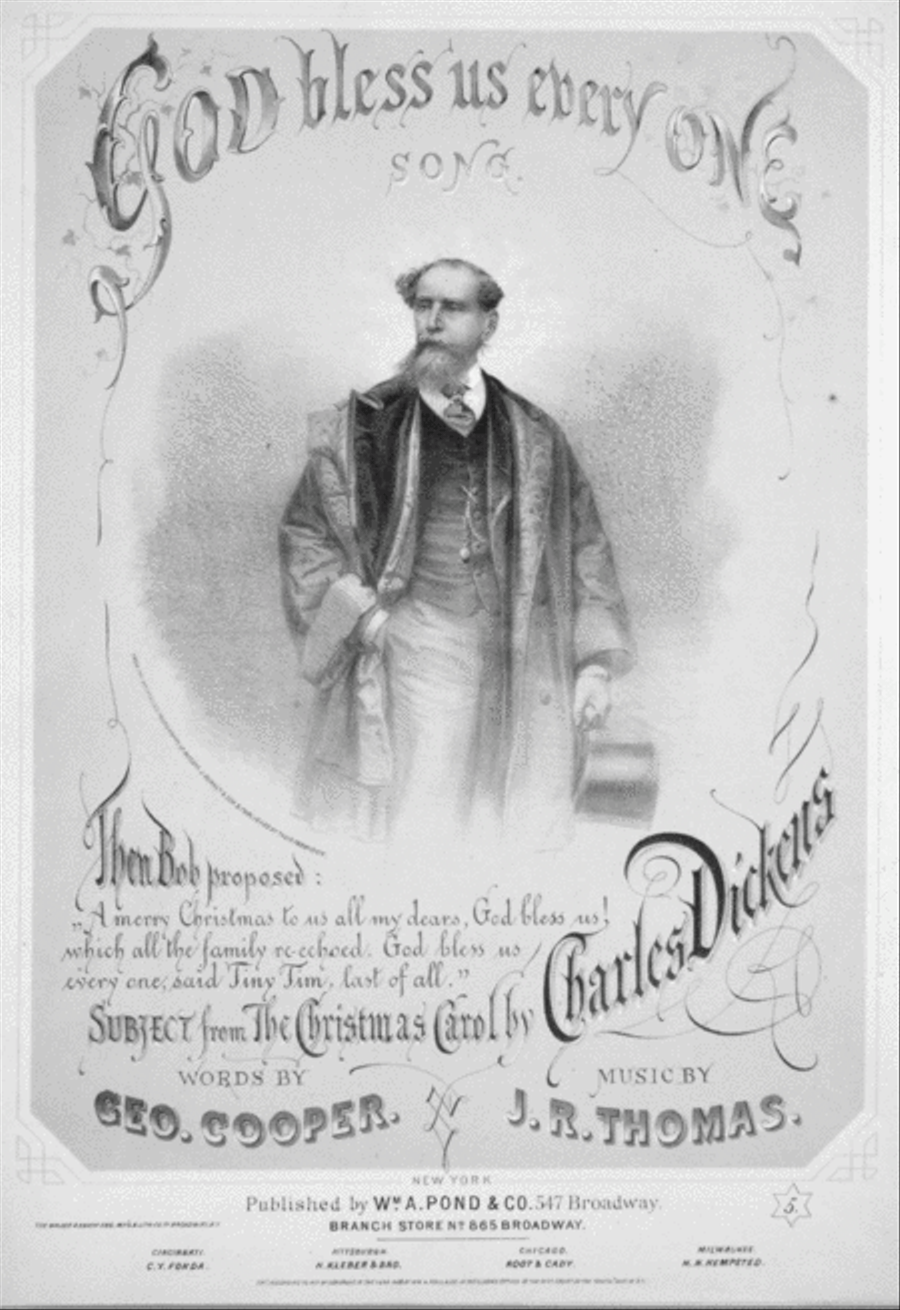 GOD bless us every ONE
SONG.
Then Bob proposed :
„A merry Christmas to us all my dears, God bless us!
which all the family re-echoed. God bless us
every one, said Tiny Tim, last of all.”
SUBJECT from The Christmas Carol by Charles Dickens
WORDS BY
GEO. COOPER.
MUSIC BY
J. R. THOMAS.
NEW YORK
Published by WM A. POND & CO. 547 Broadway.
BRANCH STORE No 865 BROADWAY.
5.
CINCINNATI. PITTSBURGH. CHICAGO. MILWAUKEE.
C. Y. FONDA. H. KLEBER & BRO. ROOT & CADY. H. N. HEMPSTED.